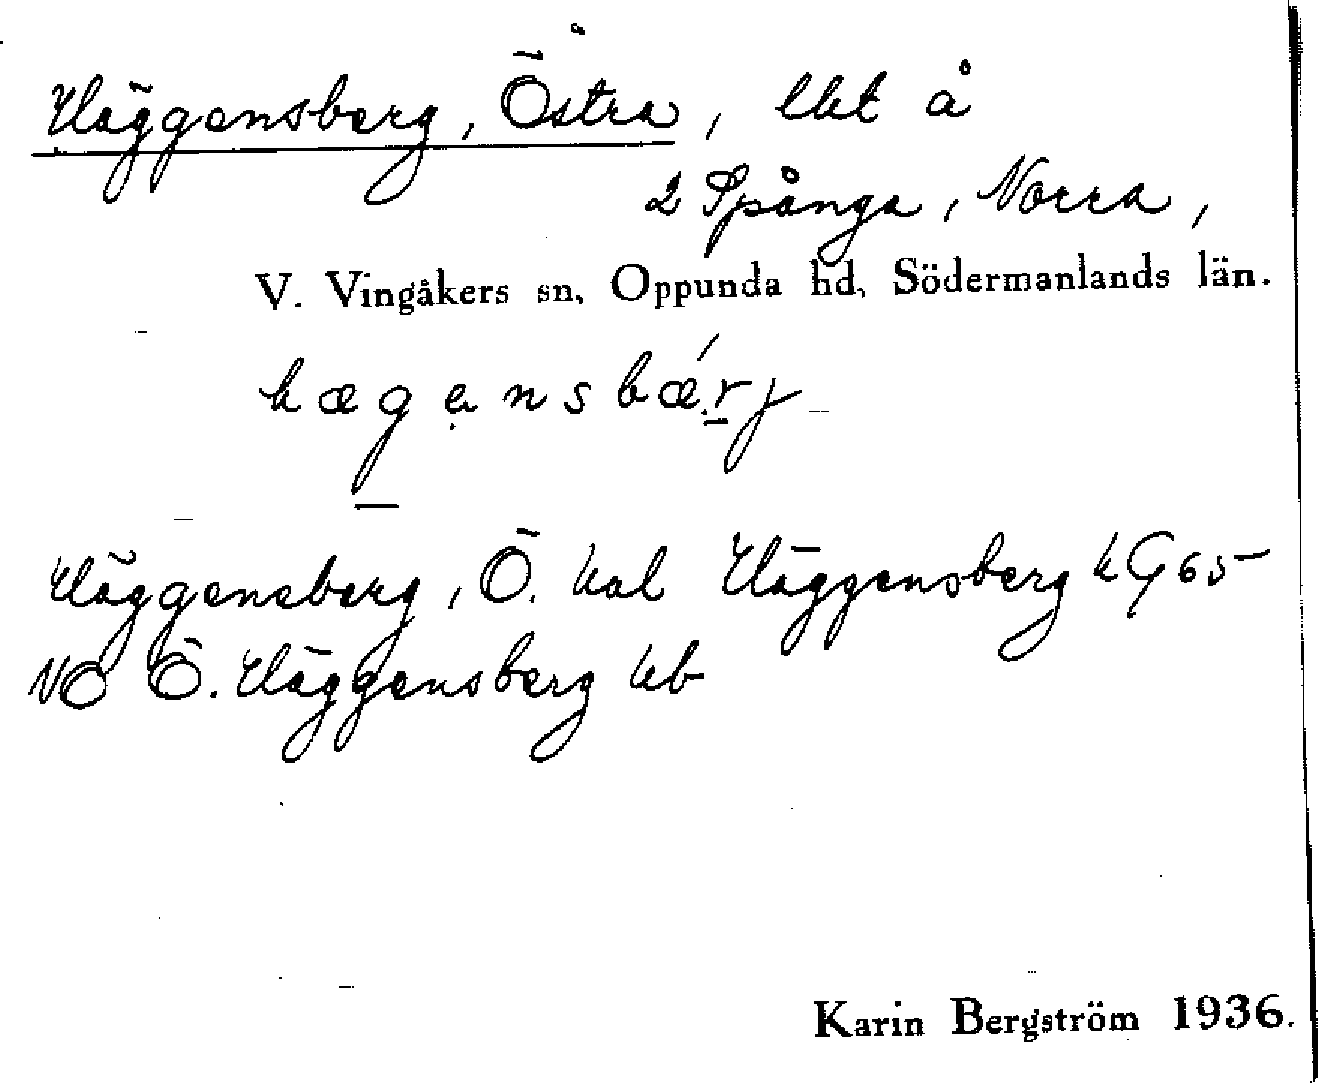 Häggensberg, Östra, lht å
2 Spånga, Norra,
V. Vingåkers sn, Oppunda hd, Södermanlands län.
hægensbærj
Häggensberg, Ö. hal Häggensberg hG 65
NO Ö. Häggensberg hb
Karin Bergström 1936.